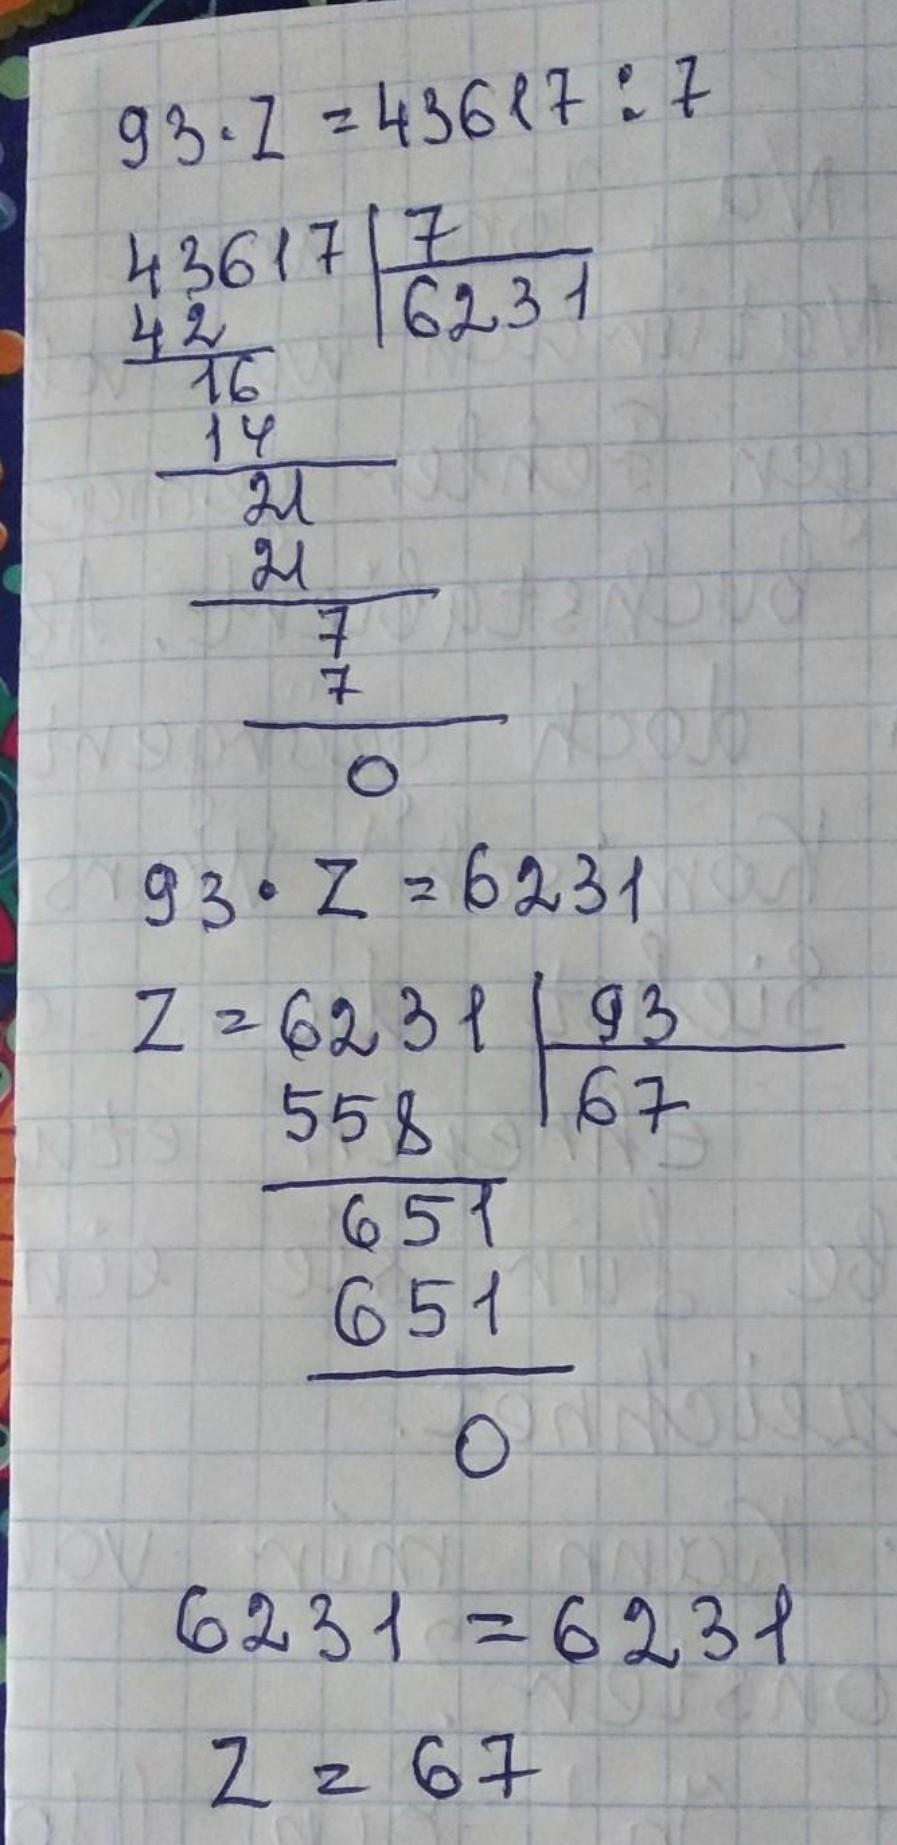 93·Z = 43617 : 7
43617 | 7
42 | 6231
16
14
21
21
7
7
0
93 · Z = 6231
Z = 6231 | 93
558 | 67
651
651
0
6231 = 6231
Z = 67